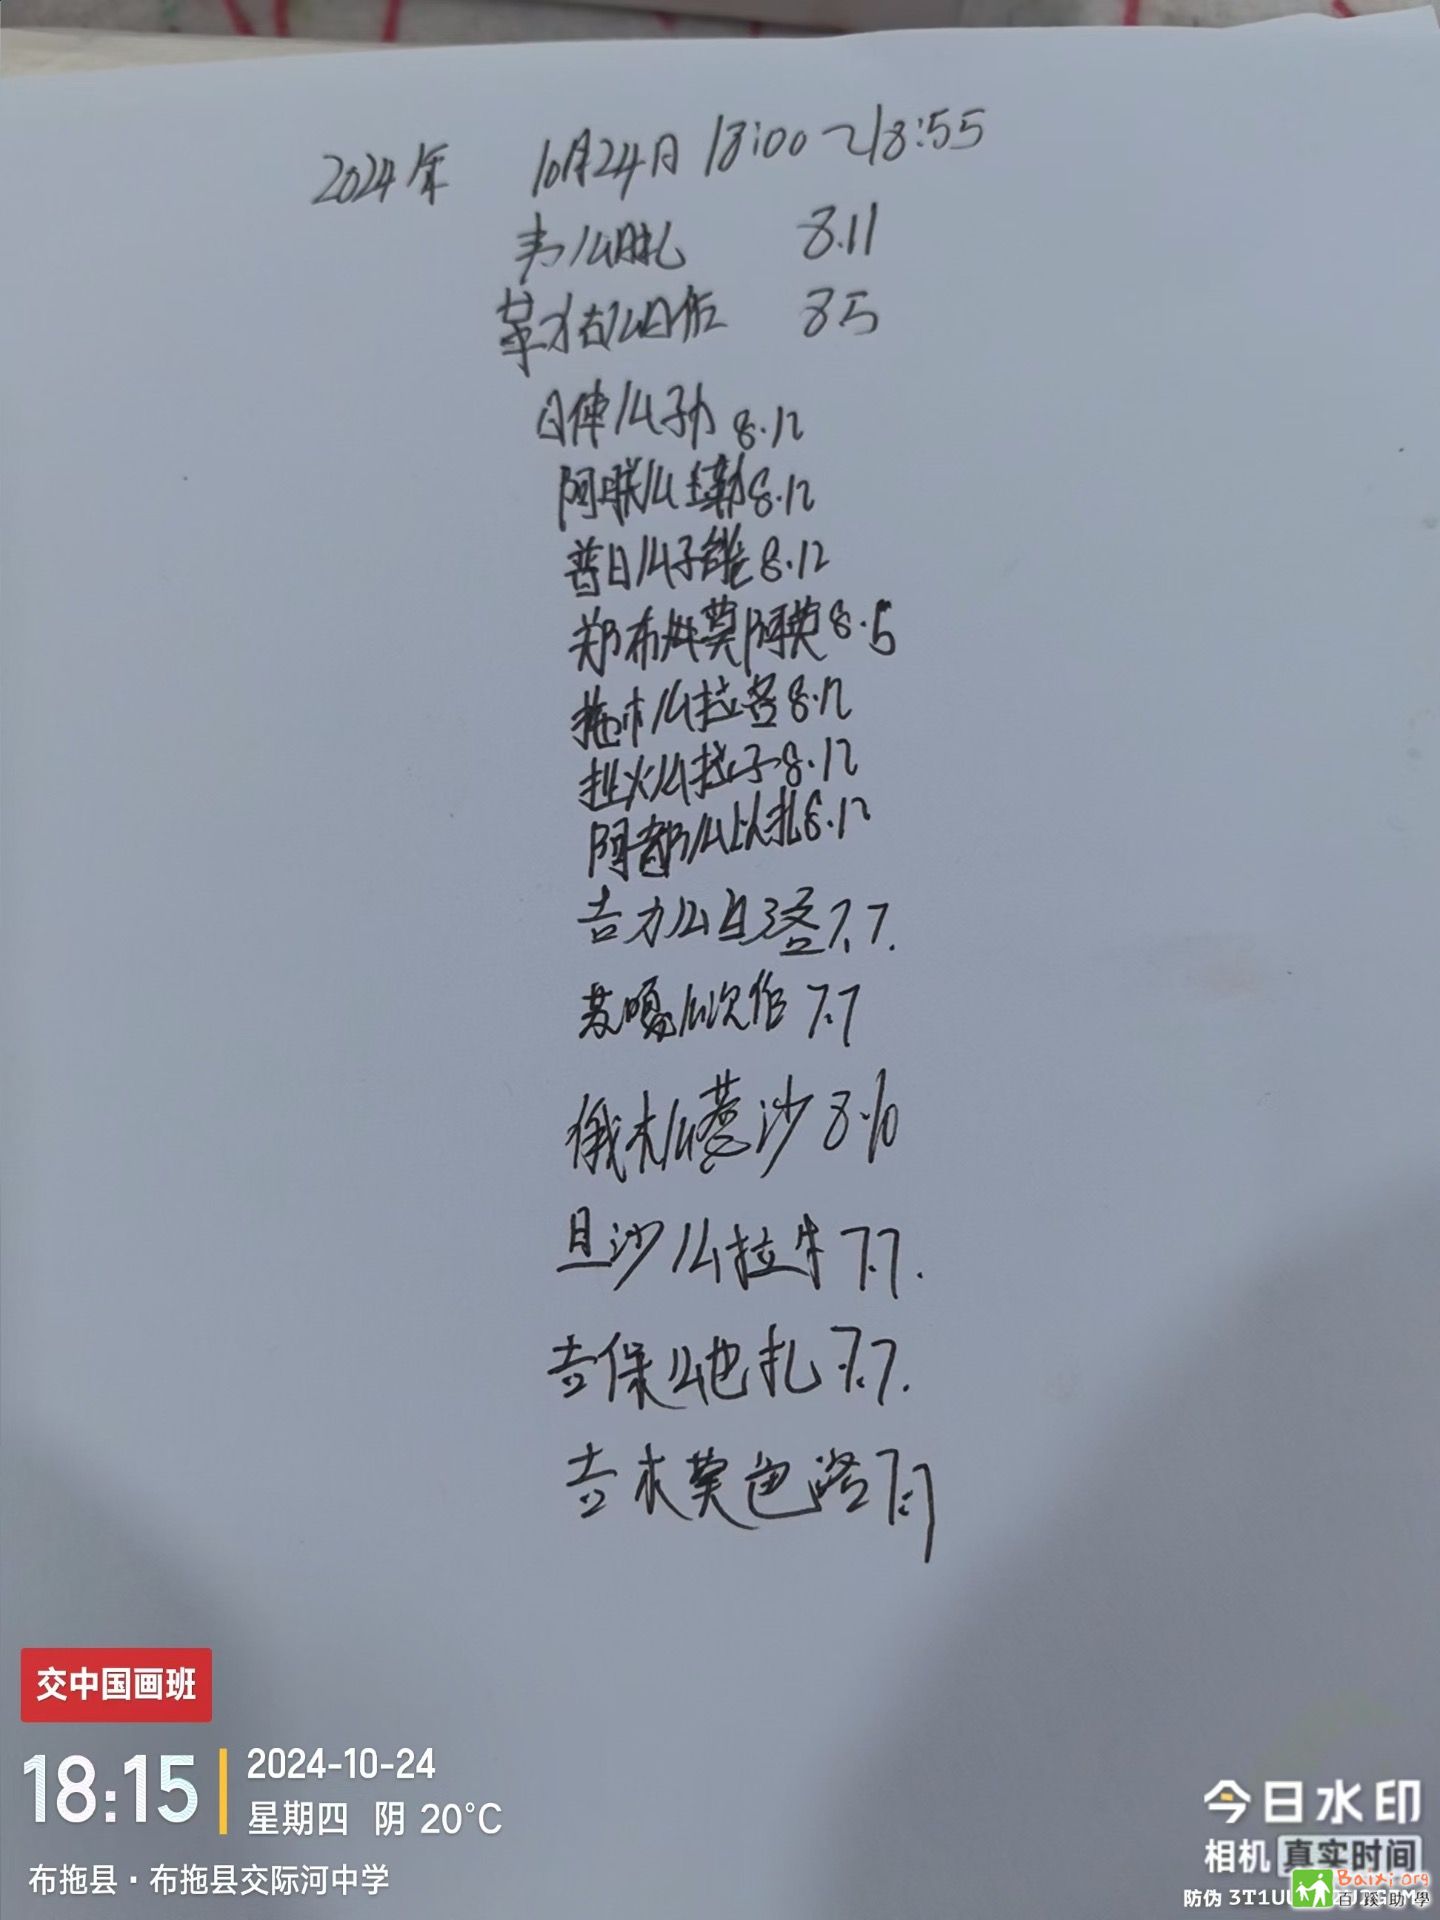 2024年 10月24日 18:00～18:55
韦么日扎 8.11
草才右么日作 85
日伟么子力 8.12
阿联么主勒 8.12
普日么子维 8.12
郑布莫阿英 8.5
拖木么拉洛 8.12
挂火么拉子 8.12
阿都么以扎 8.12
吉力么日洛 7.7.
苏嘎么次作 7.7
俄木么惹沙 8.10
且沙么拉牛 7.7.
吉保么地扎 7.7.
吉木莫色洛 7.7
交中国画班
18:15
2024-10-24
星期四 阴 20°C
布拖县·布拖县交际河中学
今日水印
相机 真实时间
防伪 3T1U
Baixi.org
百蹊助學